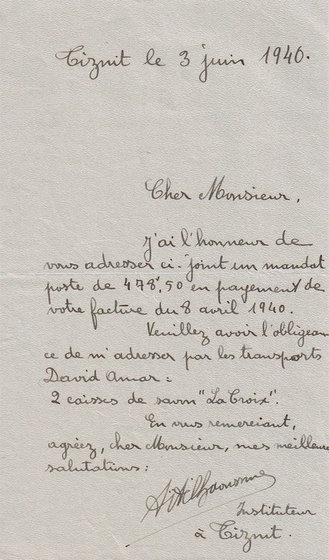 Tiznit le 3 juin 1940.
Cher Monsieur,
j'ai l'honneur de
vous adresser ci-joint un mandat
poste de 478f,50 en payement de
votre facture du 8 avril 1940.
Veuillez avoir l'obligean
ce de m'adresser par les transports
David Amar :
2 caisses de savon "La Croix".
En vous remerciant,
agréez, cher Monsieur, mes meilleures
salutations :
Instituteur
à Tiznit.